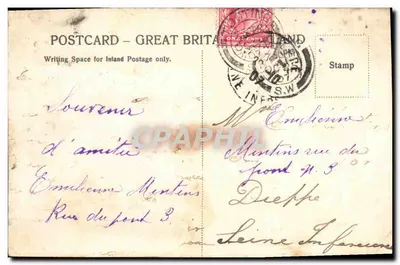 POSTCARD – GREAT BRITA LAND
Writing Space for Inland Postage only.
Stamp
Souvenir
d'amitié
Emilienne Mintins
Rue du pont 3
Mlle Emilienne
Mintins rue du
pont n. 3
Dieppe
Seine Inférieure
CPAPHIL